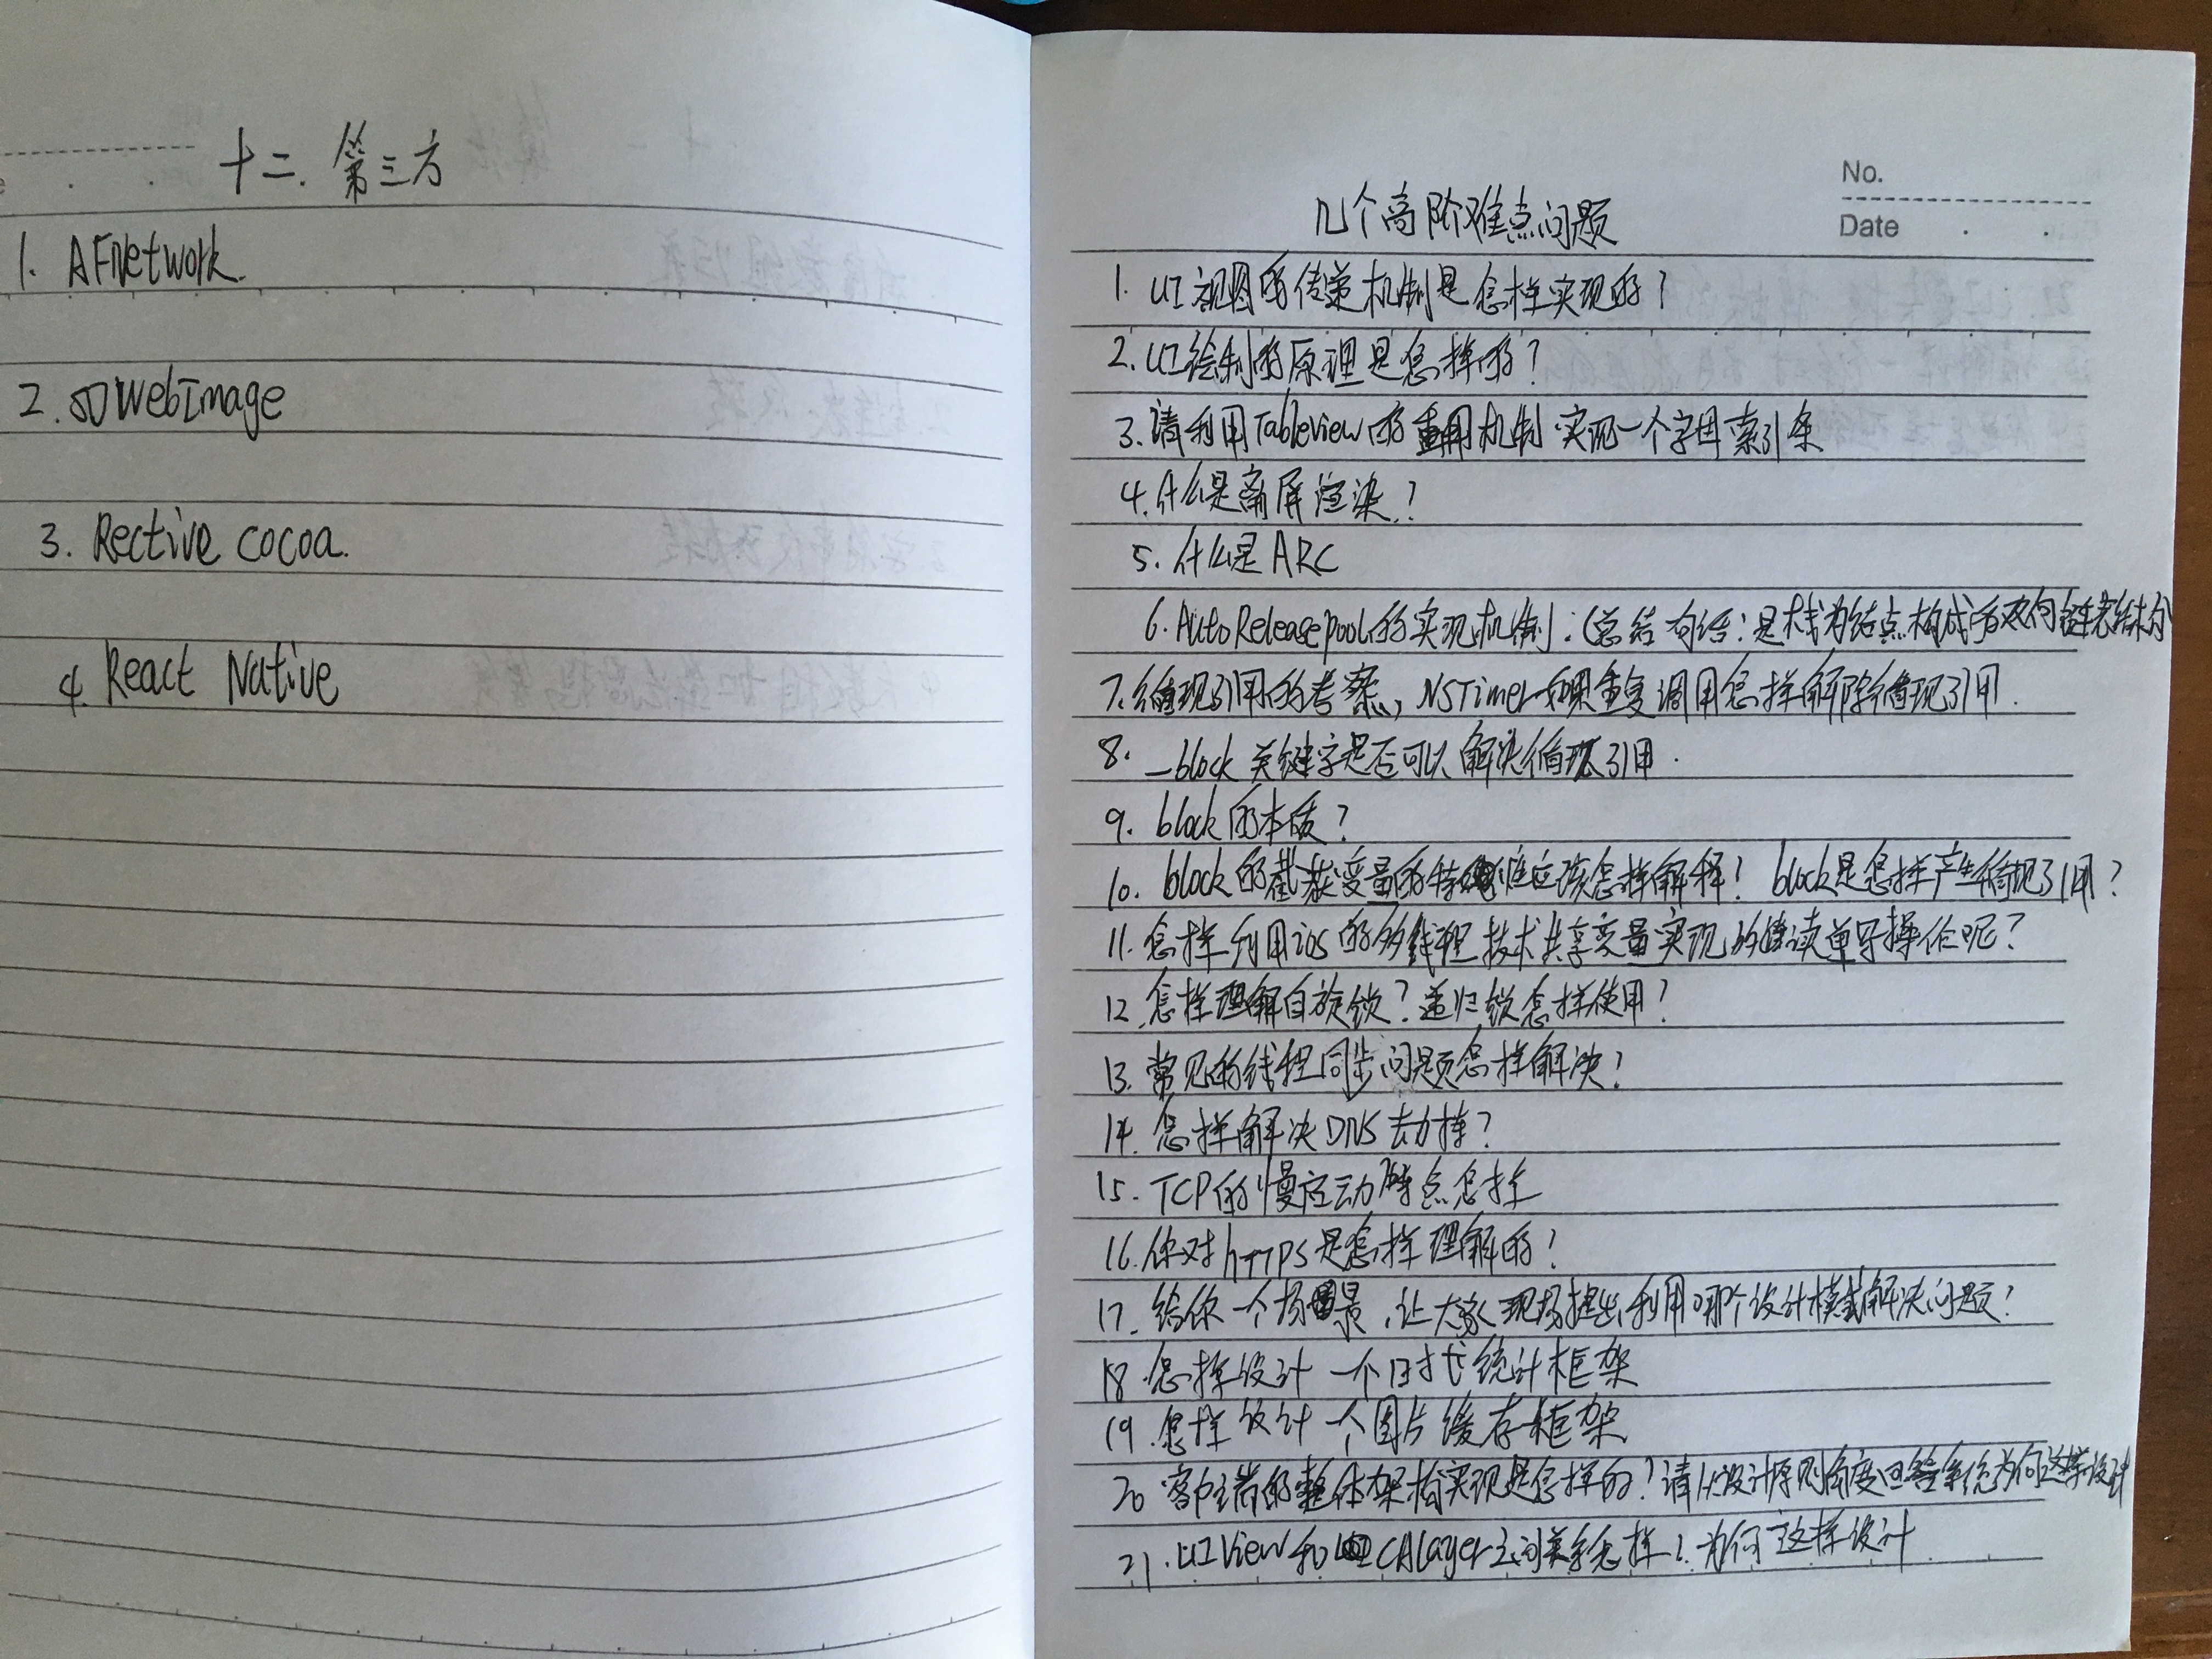 十二. 第三方
1. AFNetwork.
2. SDWebImage
3. Rective cocoa.
4. React Native
No.
Date
几个高阶难点问题
1. UI视图的传递机制是怎样实现的?
2. UI绘制的原理是怎样的?
3. 请利用Tableview的重用机制 实现一个字母索引条
4. 什么是离屏渲染?
5. 什么是ARC
6. AutoReleasepool的实现机制: (总结为答: 是栈为结点构成的双向链表结构
7. 循环引用的考察, NSTimer 重复调用怎样解除循环引用.
8. _block 关键字是否可以解决循环引用.
9. block 的本质?
10. block的截获变量的特性应该怎样解释? block是怎样产生循环引用?
11. 怎样利用iOS的的线程技术其享变量实现的值读单写操作呢?
12. 怎样理解自旋锁? 递归锁怎样使用?
13. 常见的线程同步问题怎样解决?
14. 怎样解决DNS劫持?
15. TCP的慢启动特点怎样
16. 你对hTTPS是怎样理解的?
17. 给你一个场景, 让大家现场提出利用哪个设计模式解决问题?
18. 怎样设计一个日式统计框架
19. 怎样设计一个图片缓存框架
20. 客户端的整体架构实现是怎样的? 请从设计模式角度回答系统为何这样设计
21. UIView 和 CALayer之间关系怎样? 为何了这样设计